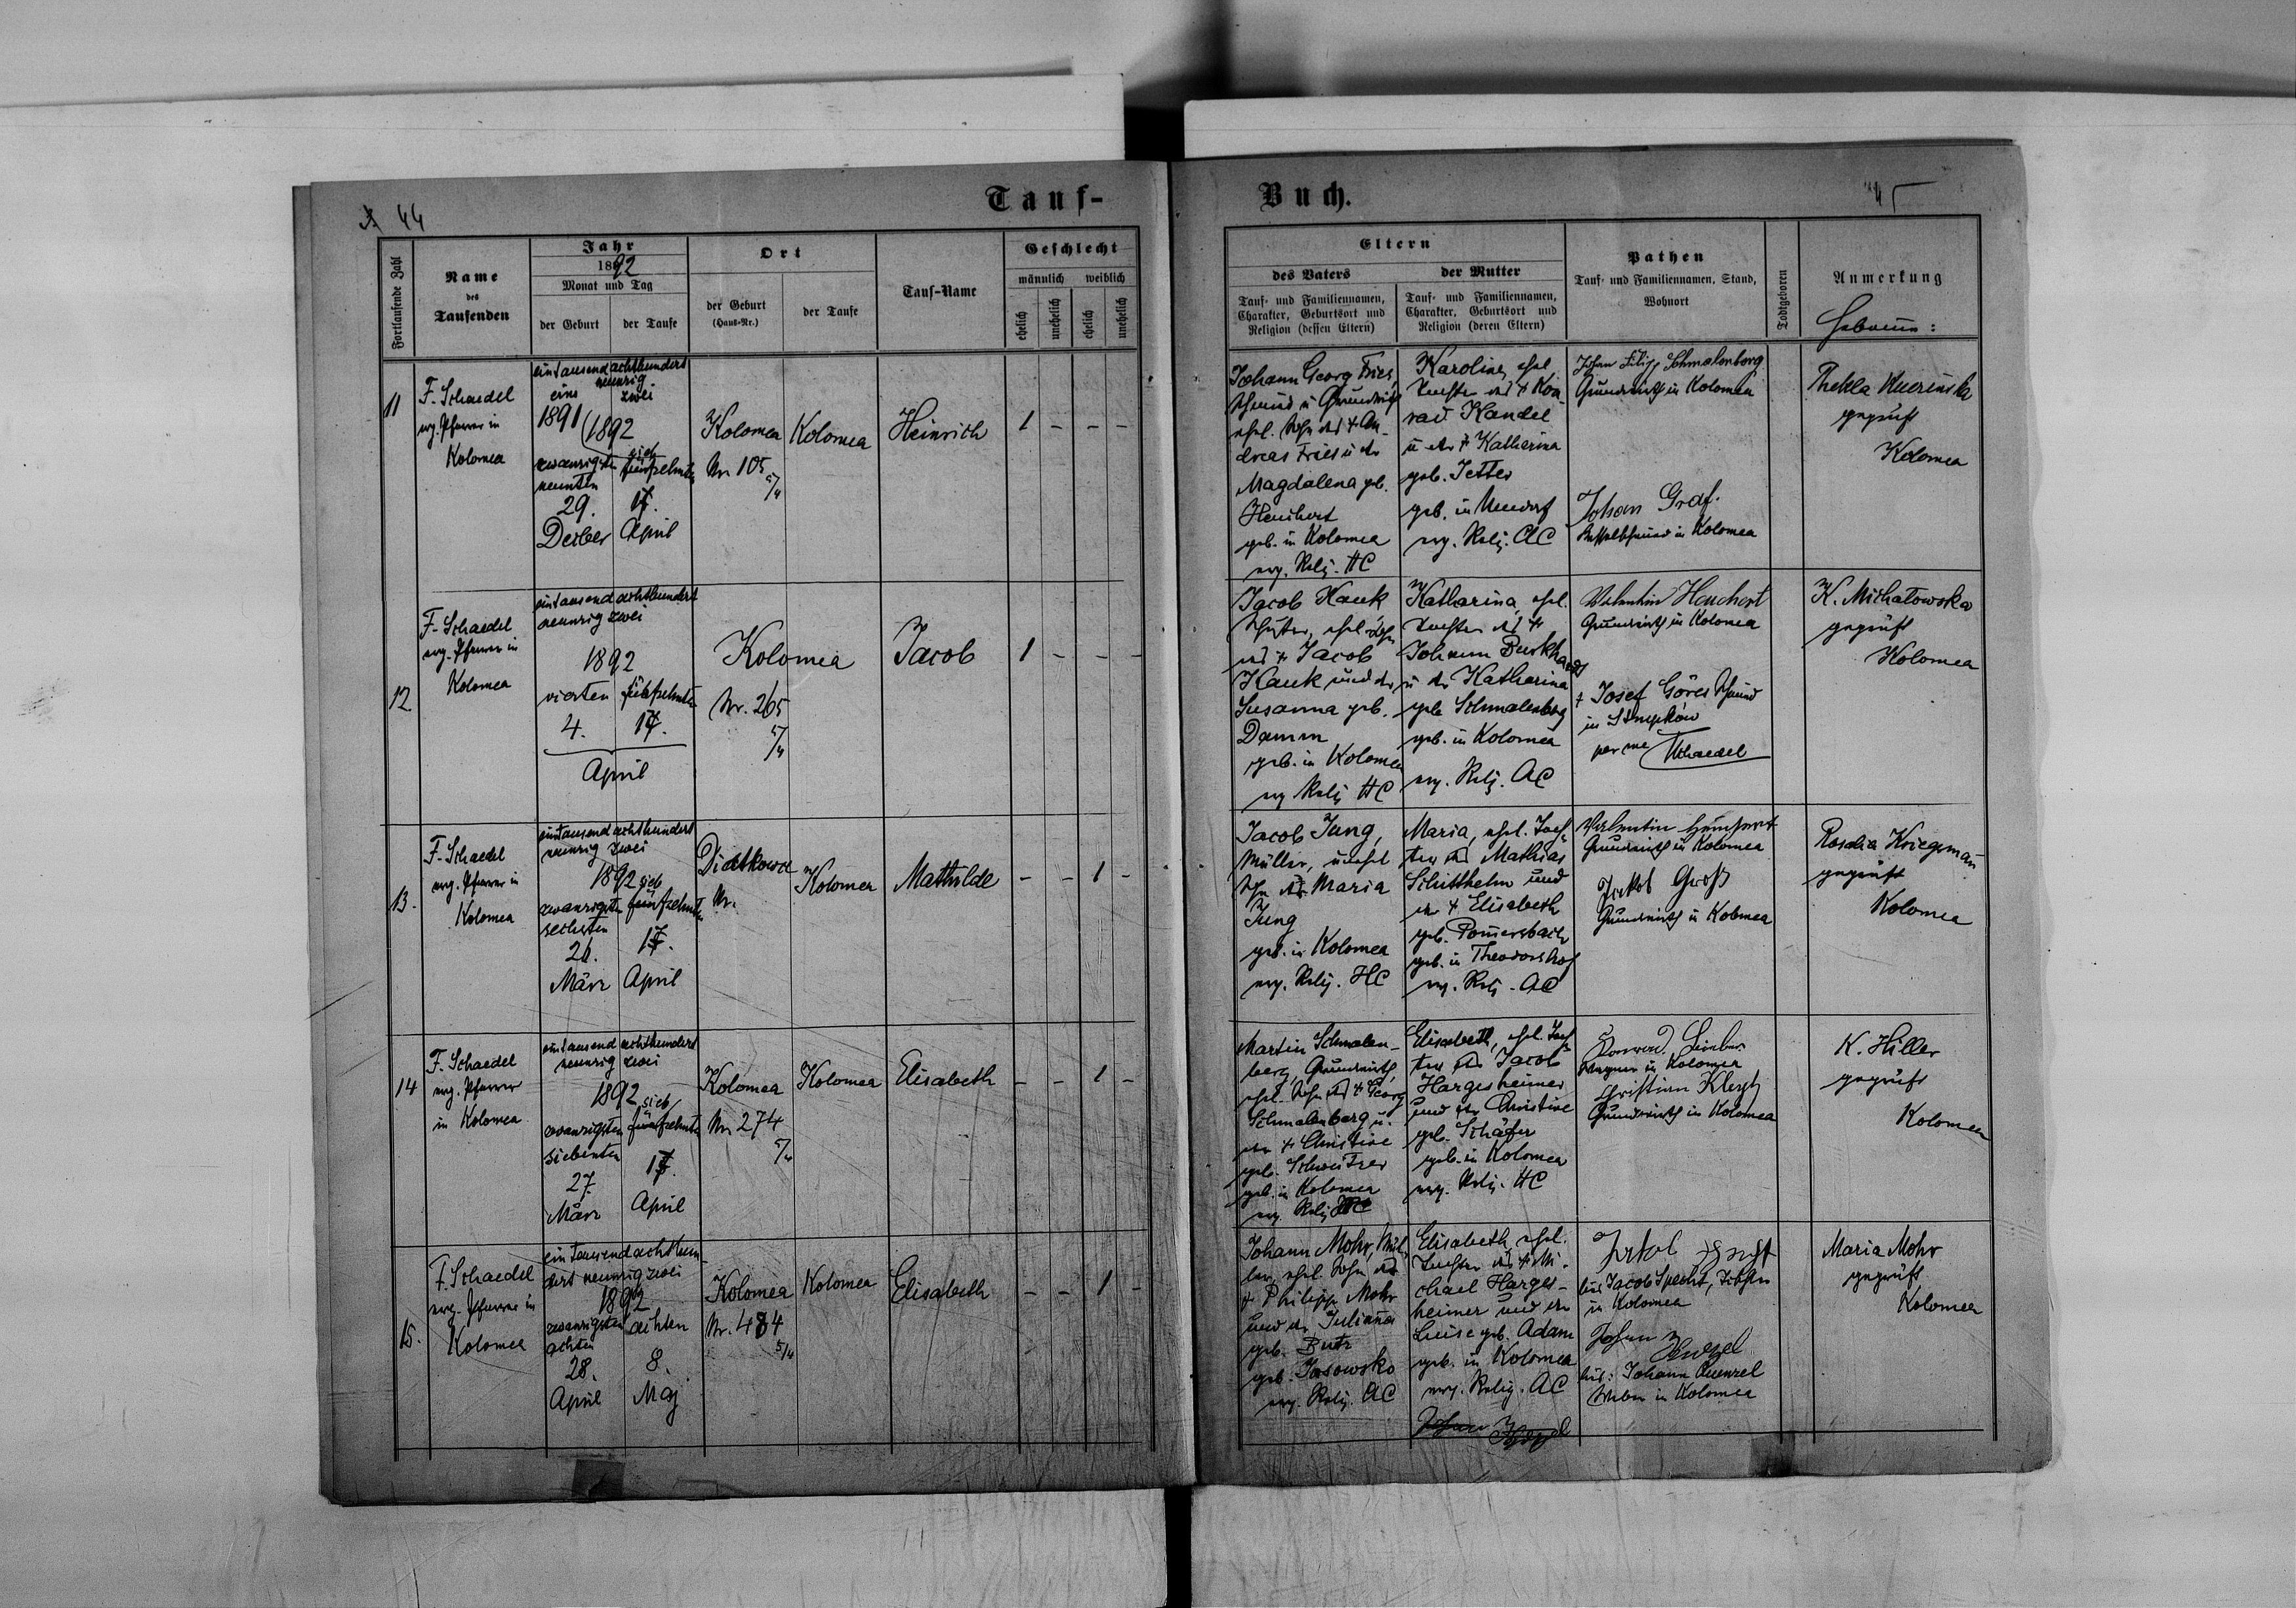 44
Tauf-
Fortlaufende Zahl
Name
des
Taufenden
Jahr
1892
Monat und Tag
der Geburt
der Taufe
Ort
der Geburt
(Haus-Nr.)
der Taufe
Tauf-Name
Geschlecht
männlich
weiblich
ehelich
unehelich
ehelich
unehelich
11
F. Schaedel
evg. Pfarrer in
Kolomea
eintausend achthundert
neunzig
eins
zwei
1891
1892
zwanzigsten
neunten
29.
Dezber
sieb
fünfzehnten
17.
April
Kolomea
Nr. 105
5/4
Kolomea
Heinrich
1 - - -
12.
F. Schaedel
evg. Pfarrer in
Kolomea
eintausend achthundert
neunzig zwei
1892
vierten
4.
fünfzehnten
17.
April
Kolomea
Nr. 265
5/4
Jacob
1 - - -
13.
F. Schaedel
evg. Pfarrer in
Kolomea
eintausend achthundert
neunzig zwei
1892
zwanzigsten
sechsten
26.
März
sieb
fünfzehnten
17.
April
Diatkowce
Nr.
Kolomea
Mathilde
- - 1 -
14
F. Schaedel
evg. Pfarrer
in Kolomea
eintausend achthundert
neunzig zwei
1892
zwanzigsten
siebenten
27.
März
sieb
fünfzehnten
17.
April
Kolomea
Nr. 274
5/4
Kolomea
Elisabeth
- - 1 -
15.
F. Schaedel
evg. Pfarrer in
Kolomea
ein tausend achthun-
dert neunzig zwei
1892
zwanzigsten
achten
28.
April
achten
8.
Maj
Kolomea
Nr. 484
5/4
Kolomea
Elisabeth
- - 1 -
Buch.
45
Eltern
des Vaters
Tauf- und Familiennamen,
Charakter, Geburtsort und
Religion (dessen Eltern)
der Mutter
Tauf- und Familiennamen,
Charakter, Geburtsort und
Religion (deren Eltern)
Pathen
Tauf- und Familiennamen, Stand,
Wohnort
Todtgeboren
Anmerkung
Hebamme:
Johann Georg Fries,
Schmied u Grundwirth
ehel. Sohn des + An-
dreas Fries u der
Magdalena geb.
Heuchert
geb. in Kolomea
evg. Relig. HC
Karoline, ehel.
Tochter des + Kon-
rad Kandel
u der + Katharina
geb. Jetter
geb. in Ugartsthal
evg. Relig. AC
Johan Filipp Schmalenberg
Grundwirth in Kolomea
Johan Graf.
in Kolomea
Thekla
geprüft
Kolomea
Jacob Hauk
ehel. Sohn
des + Jacob
Hauk und der
Susanna geb.
Damm
geb. in Kolomea
evg Relig HC
Katharina, ehel.
Tochter des +
Johann Burkhardt
u der Katharina
geb. Schmalenberg
geb. in Kolomea
evg. Relig. AC
Valentin Heuchert
Grundwirth in Kolomea
+ Josef Göres Schmied
in Slupków
per me Schaedel
K. Michałowska
geprüft
Kolomea
Jacob Jung,
Müller, unehel
Sohn der Maria
Jung
geb. in Kolomea
evg. Relig. HC
Maria, ehel. Toch-
ter des Mathias
Schitthelm und
der + Elisabeth
geb. Pomersbach
geb. in Theodorshof
evg. Relig. AC
Valentin Heuchert
Grundwirth in Kolomea
Jakob Groß
Grundwirth in Kolomea
Rosalia Kriegsmañ
geprüft
Kolomea
Martin Schmalen-
berg, Grundwirth,
ehel. Sohn des + Georg
Schmalenberg u.
der + Christine
geb. Schweitzer
geb. in Kolomea
evg. Relig HC
Elisabeth, ehel. Toch-
ter des Jacob
Hargesheimer
und der Christine
geb. Schäfer
geb. in Kolomea
evg. Relig. HC
Konrad
Wagner in Kolomea
Christian
Grundwirth in Kolomea
K. Hiller
geprüft
Kolomea
Johann Mohr, Mül-
ler, ehel. Sohn des
+ Philipp Mohr
und der Juliana
geb. Butz
geb. Josowsko
evg. Relig. AC
Elisabeth ehel.
Tochter des + Mi-
chael Harges-
heimer und der
Luise geb. Adam
geb. in Kolomea
evg. Relig. AC
Jakob Specht
Jacob Specht,
in Kolomea
Johann
Johann Quenzel
Weber in Kolomea
Maria Mohr
geprüft
Kolomea